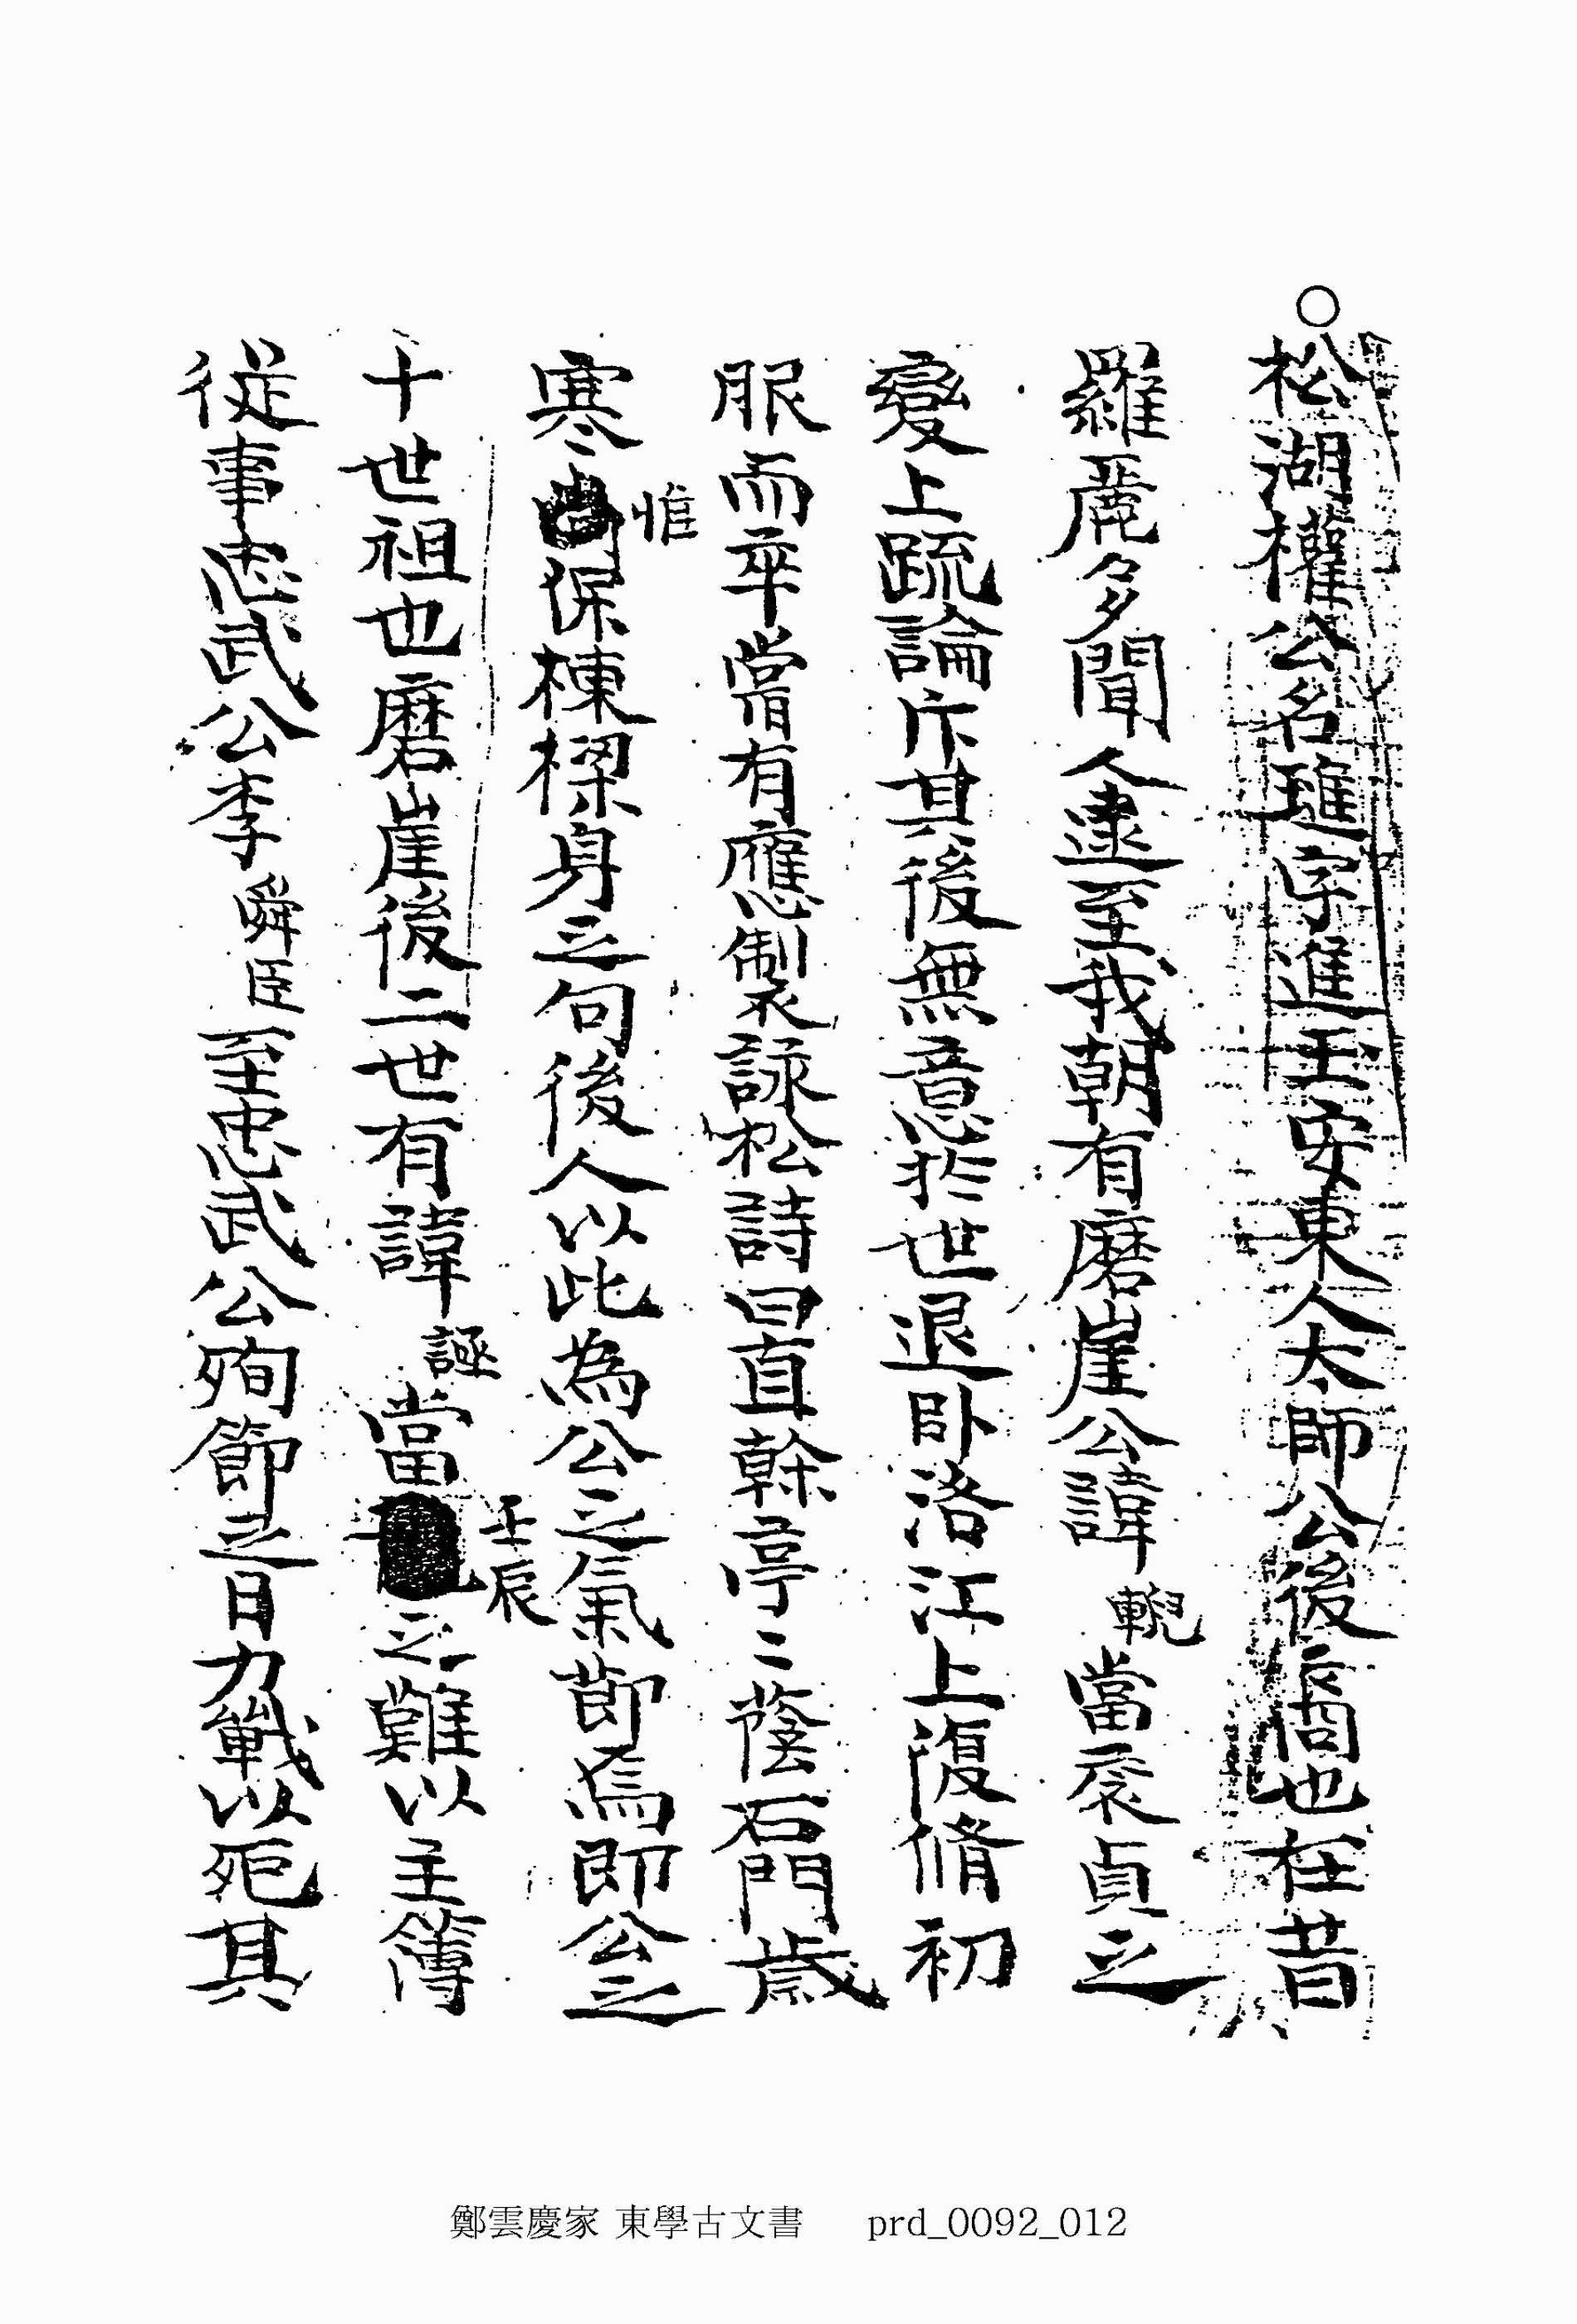 ○松湖權公名璡字進玉安東人太師公後裔也在昔
羅麗多聞人逮至我朝有磨崖公諱輗當袞貞之
變上疏論斥其後無意於世退卧洛江上復脩初
服而卒嘗有應製詠松詩曰直榦亭〻蔭石門歲
寒惟保棟樑身之句後人以此為公之氣節焉即公之
十世祖也磨崖後二世有諱誣當壬辰之難以主簿
從事忠武公李舜臣至忠武公殉節之日力戰以死其
鄭雲慶家 東學古文書 prd_0092_012